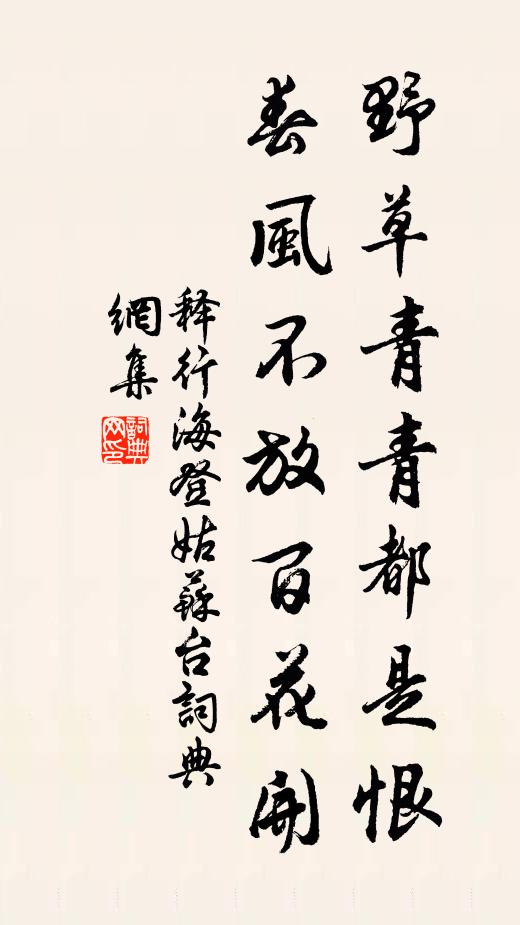 野草青青都是恨
春風不放百花開
释行海登姑蘇台詞典
網集
詞典
网印